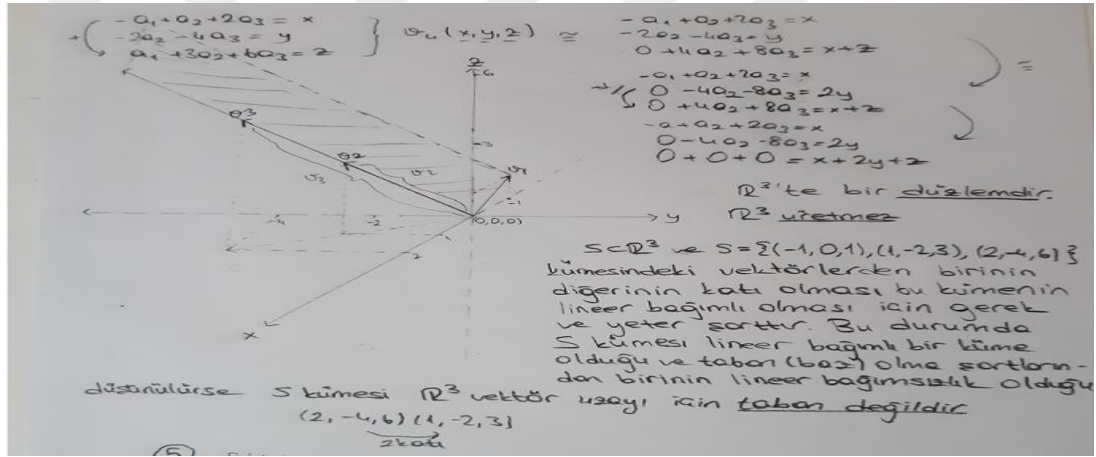 -a₁+a₂+2a₃=x
-2a₂-4a₃=y
a₁+3a₂+6a₃=z
v₄(x,y,z) ≅
-a₁+a₂+2a₃=x
-2a₂-4a₃=y
0+4a₂+8a₃=x+z
=
-a₁+a₂+2a₃=x
0-4a₂-8a₃=2y
0+4a₂+8a₃=x+z
-a+a₂+2a₃=x
0-4a₂-8a₃=2y
0+0+0=x+2y+z
z
6
3
v3
v2
v3
v2
v1
-1
-4
-2
(0,0,0)
y
2
x
R³'te bir düzlemdir.
R³ üretmez
S⊂R³ ve S={(-1,0,1),(1,-2,3),(2,-4,6)}
kümesindeki vektörlerden birinin
diğerinin katı olması bu kümenin
lineer bağımlı olması için gerek
ve yeter şarttır. Bu durumda
S kümesi lineer bağımlı bir küme
olduğu ve taban (baz) olma şartların-
dan birinin lineer bağımsızlık olduğu
düşünülürse S kümesi R³ vektör uzayı için taban değildir
(2,-4,6)(1,-2,3)
2 katı
5